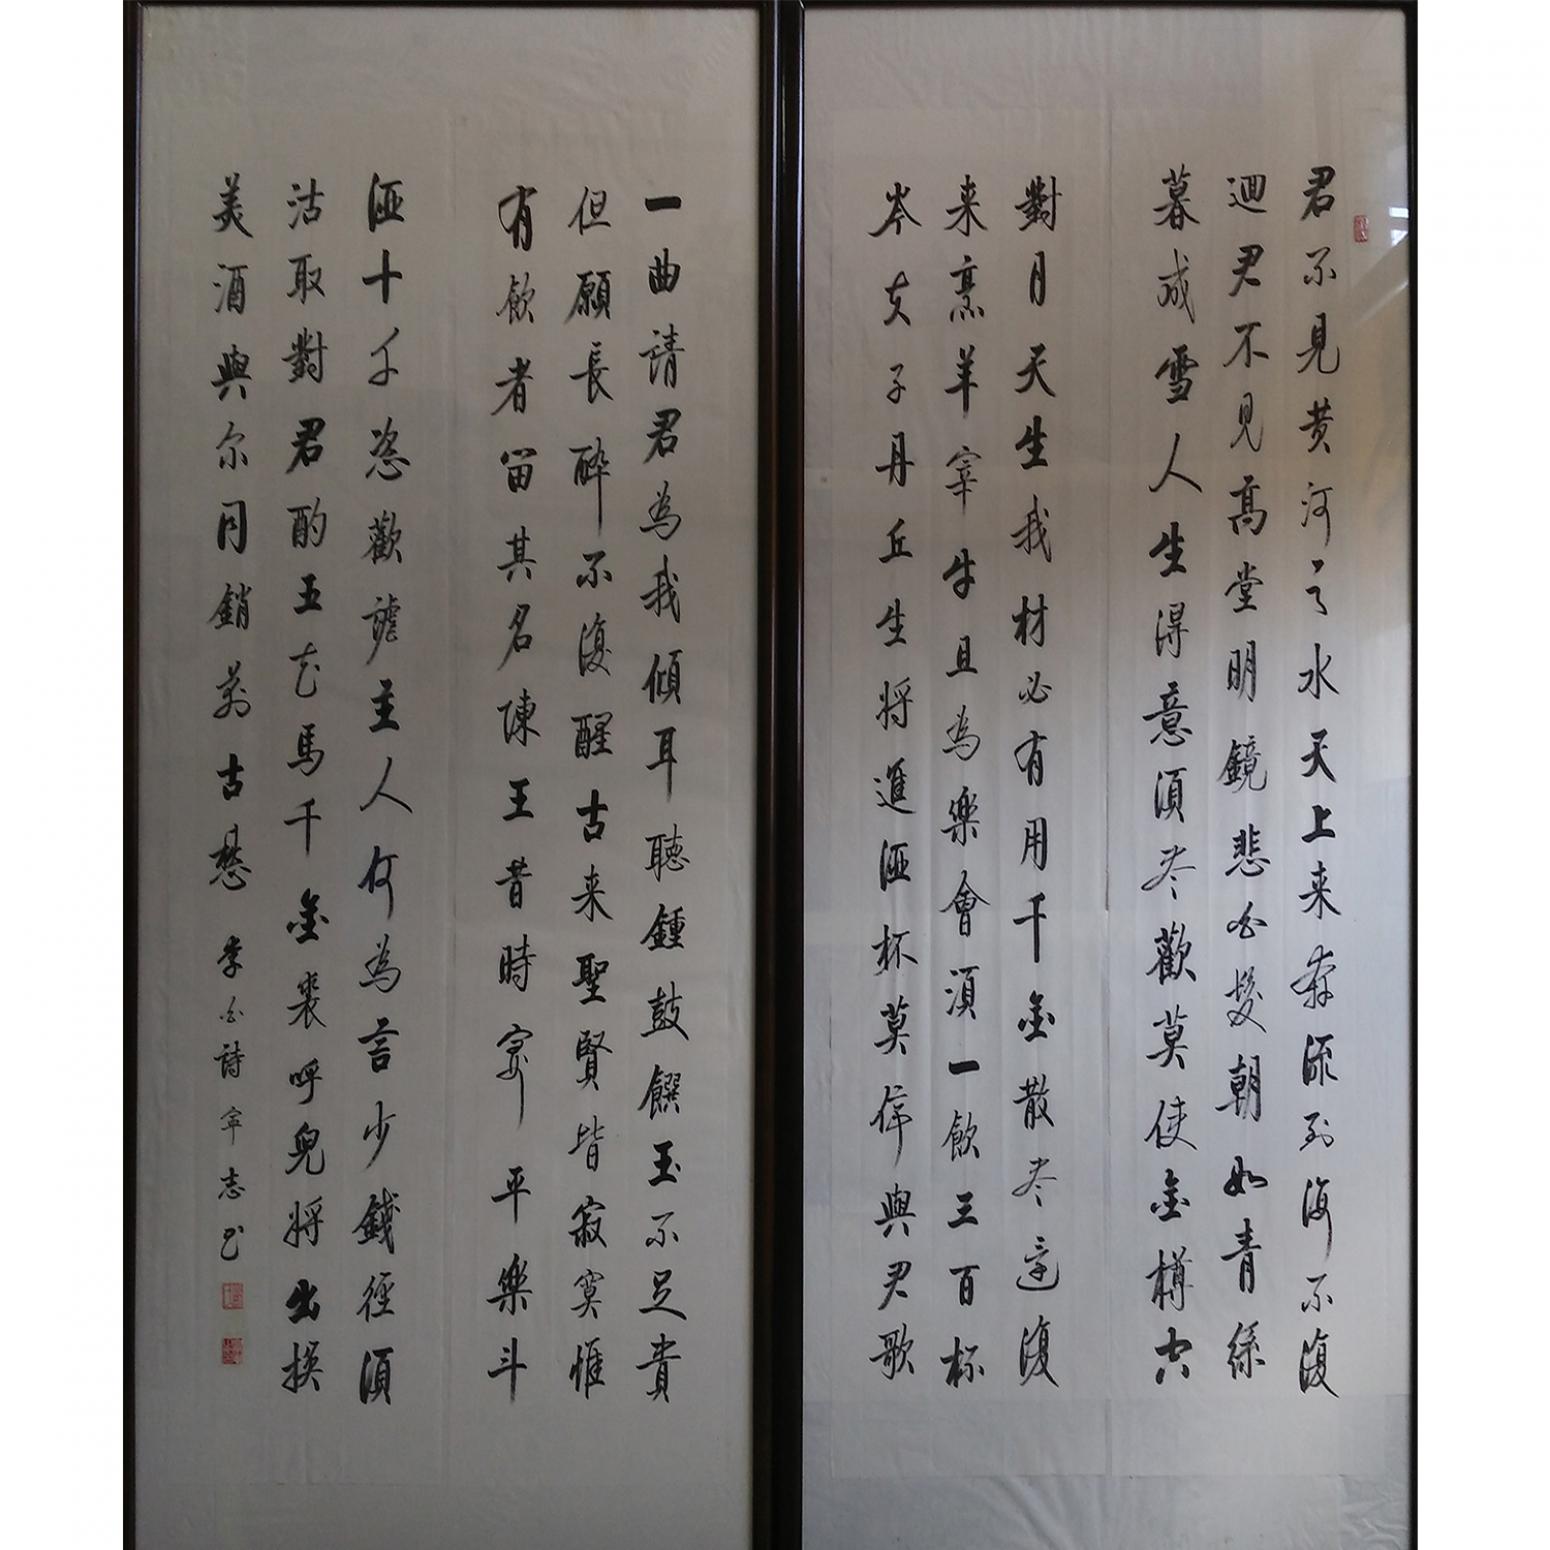 君不見黄河之水天上来奔流到海不復
迴君不見高堂明鏡悲白髮朝如青絲
暮成雪人生得意須尽歡莫使金樽空
對月天生我材必有用千金散尽還復
来烹羊宰牛且為樂會須一飲三百杯
岑夫子丹丘生将進酒杯莫停與君歌
一曲請君為我傾耳聽鍾鼓饌玉不足貴
但願長醉不復醒古来聖賢皆寂寞惟
有飲者留其名陳王昔時宴平樂斗
酒十千恣歡謔主人何為言少錢徑須
沽取對君酌五花馬千金裘呼兒将出換
美酒與尔同銷萬古愁 李白詩 寧志书